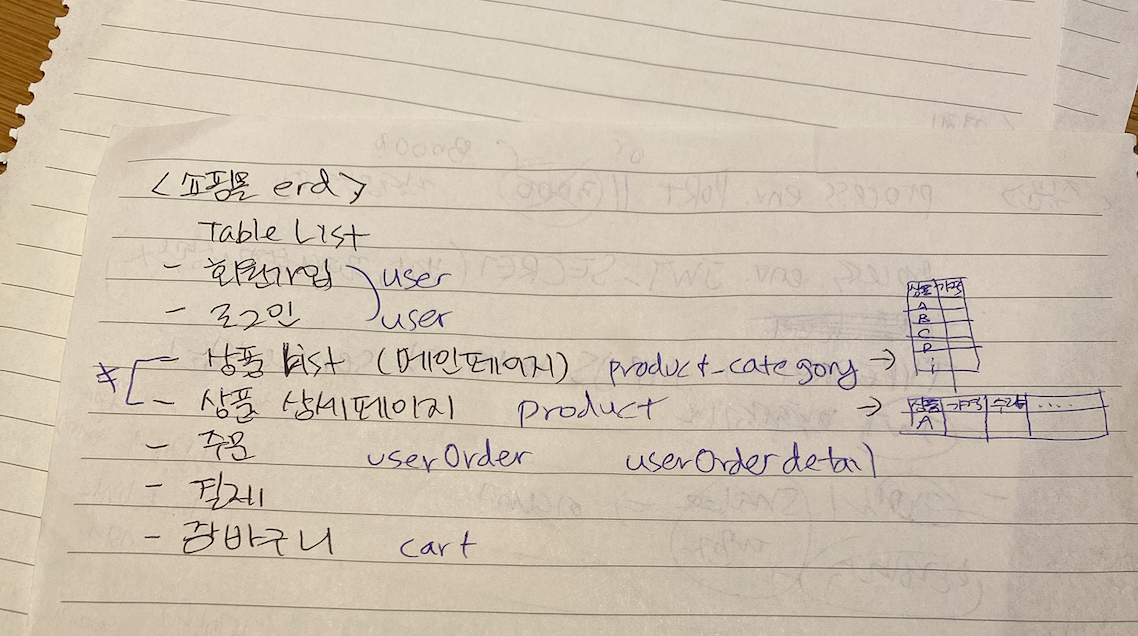 <쇼핑몰 erd>
Table List
- 회원가입 user
- 로그인 user
* - 상품 List (메인페이지) product_category →
- 상품 상세페이지 product →
- 주문 userOrder userOrderdetail
- 결제
- 장바구니 cart
상품 가격
A
B
C
D
⋮
상품 가격 수량 .....
A